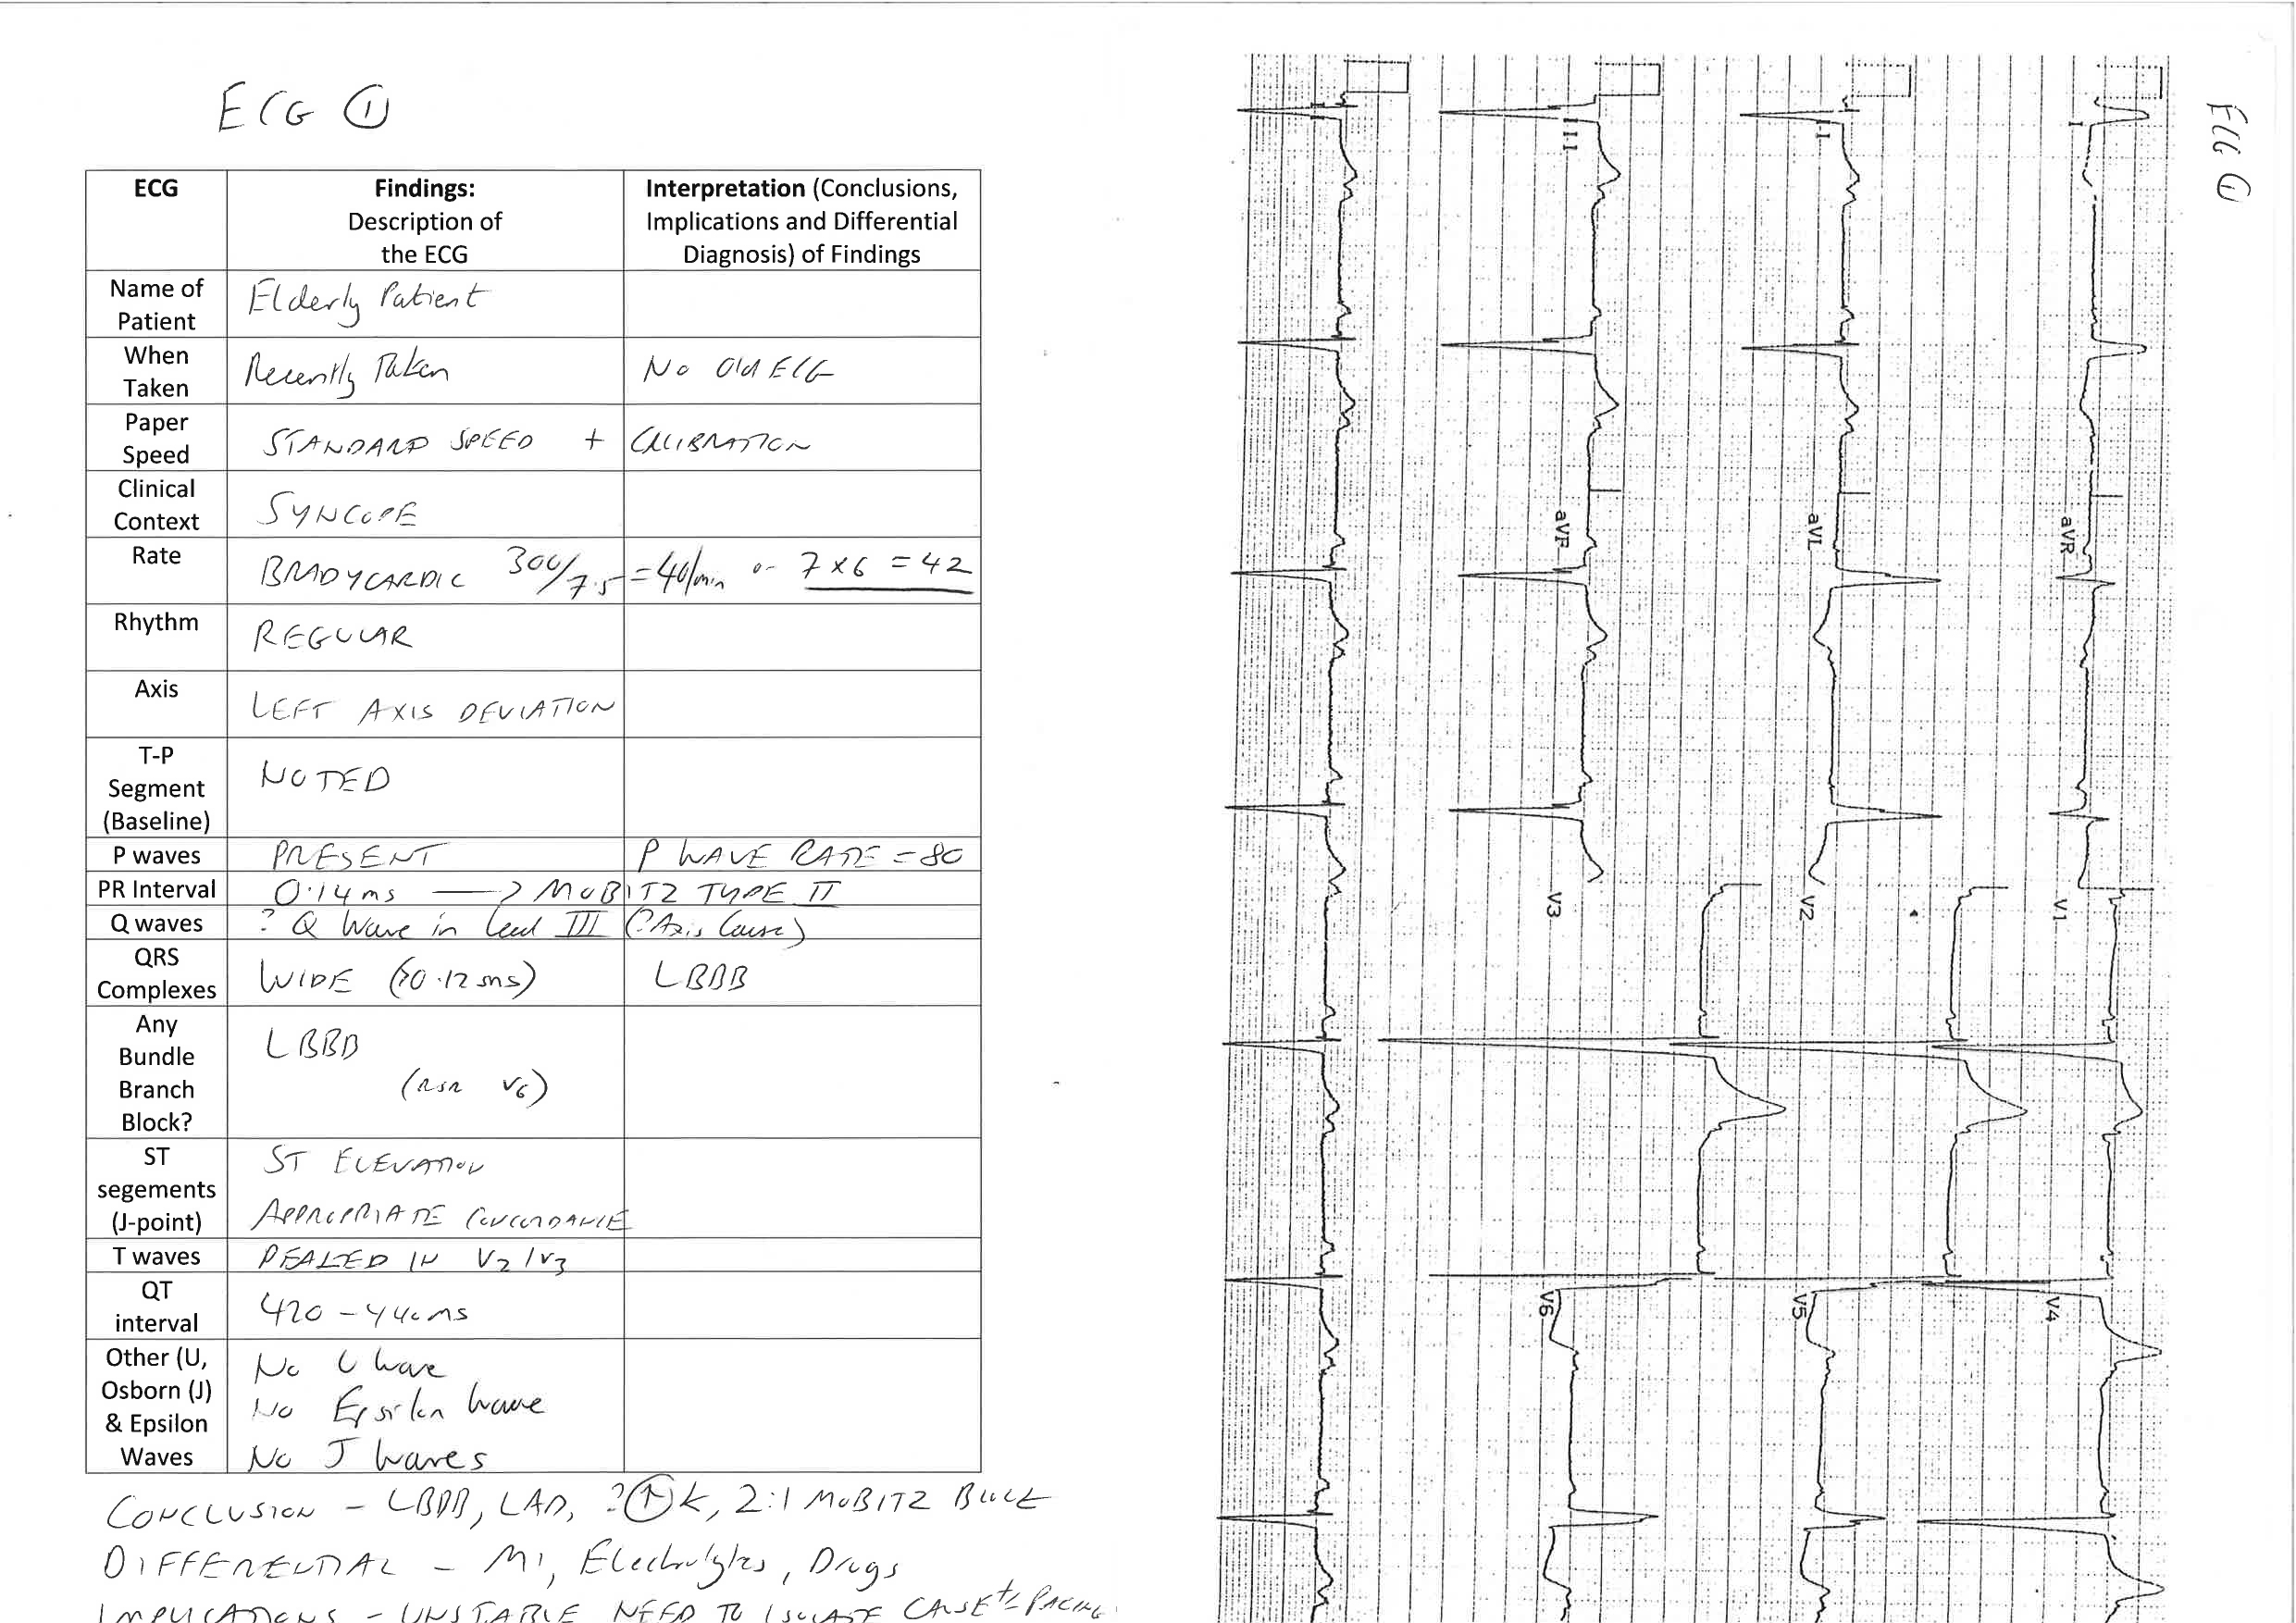 ECG ①
ECG
Findings:
Description of
the ECG
Interpretation (Conclusions,
Implications and Differential
Diagnosis) of Findings
Name of
Patient
Elderly Patient
When
Taken
Recently Taken
No Old ECG
Paper
Speed
STANDARD SPEED + CALIBRATION
Clinical
Context
SYNCOPE
Rate
BRADYCARDIC 300/7.5 = 40/min or 7 x 6 = 42
Rhythm
REGULAR
Axis
LEFT AXIS DEVIATION
T-P
Segment
(Baseline)
NOTED
P waves
PRESENT
P WAVE RATE = 80
PR Interval
0.14ms → MOBITZ TYPE II
Q waves
? Q Wave in Lead III (? Axis Cause)
QRS
Complexes
WIDE (>0.12 ms)
LBBB
Any
Bundle
Branch
Block?
LBBB
(RSR V6)
ST
segements
(J-point)
ST ELEVATION
APPROPRIATE CONCORDANCE
T waves
PEAKED IN V2/V3
QT
interval
420 - 440ms
Other (U,
Osborn (J)
& Epsilon
Waves
No U wave
No Epsilon wave
No J waves
CONCLUSION - LBBB, LAD, ?↑K, 2:1 MOBITZ BLOCK
DIFFERENTIAL - MI, Electrolytes, Drugs
IMPLICATIONS - UNSTABLE NEED TO ISOLATE CAUSE +/- PACING
ECG ①
I
aVR
V1
V4
II
aVL
V2
V5
III
aVF
V3
V6